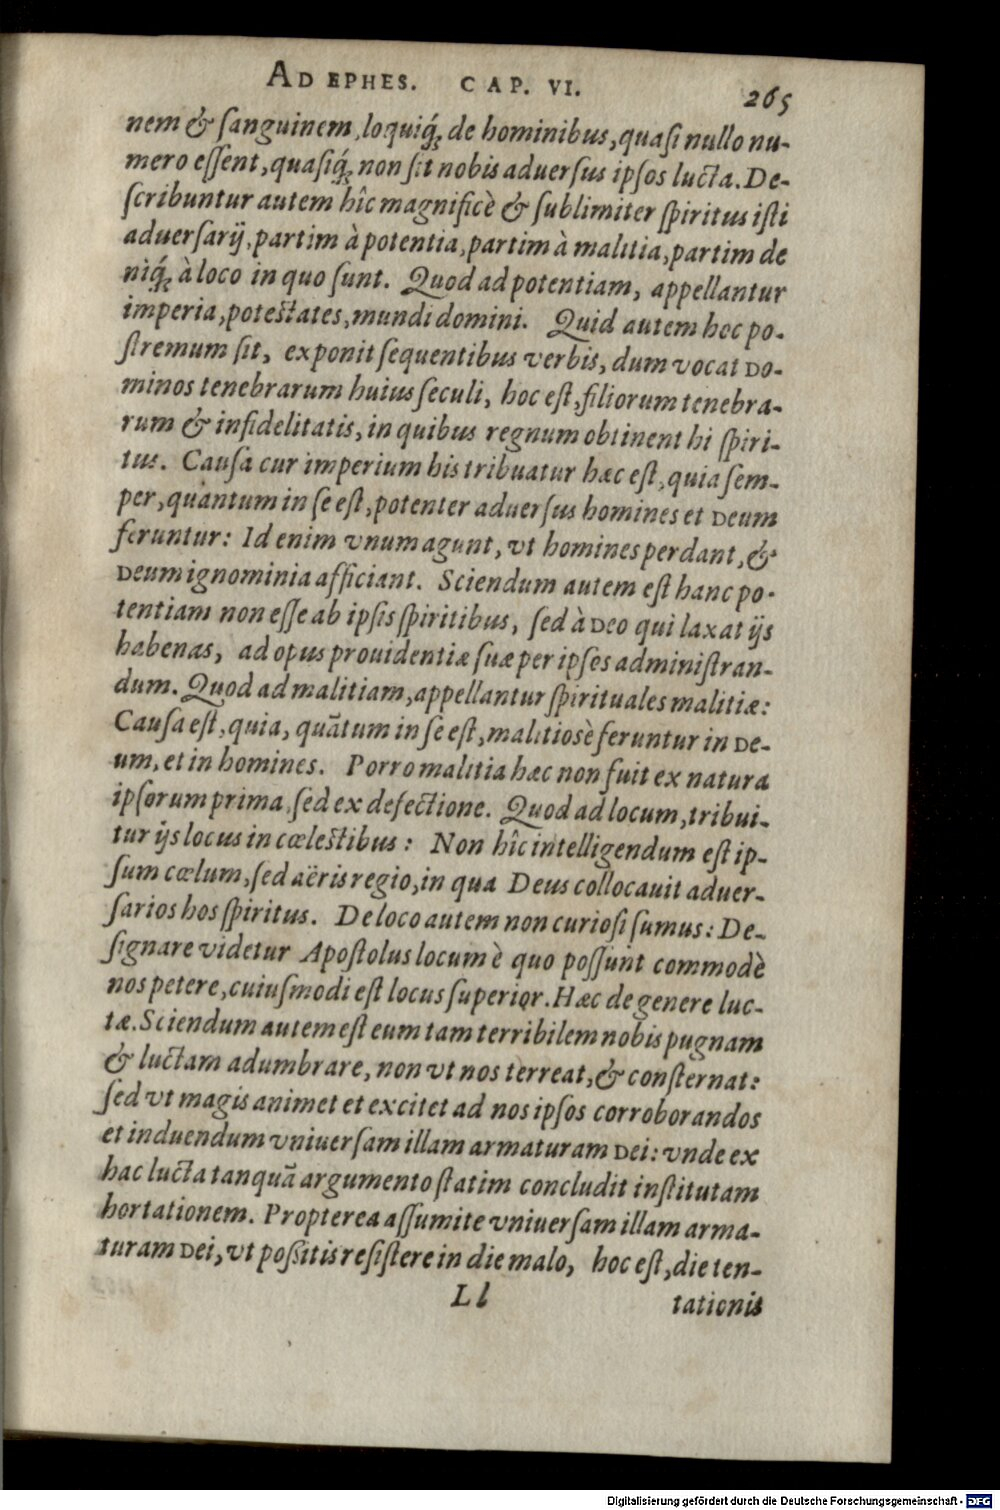 AD EPHES. CAP. VI. 265
nem & ſanguinem, loquiq́; de hominibus, quaſi nullo nu-
mero eſſent, quaſiq́; non ſit nobis aduerſus ipſos lucta. De-
ſcribuntur autem hîc magnificè & ſublimiter ſpiritus iſti
aduerſarij, partim à potentia, partim à malitia, partim de
niq́; à loco in quo ſunt. Quod ad potentiam, appellantur
imperia, poteſtates, mundi domini. Quid autem hoc po-
ſtremum ſit, exponit ſequentibus verbis, dum vocat DO-
minos tenebrarum huius ſeculi, hoc eſt, filiorum tenebra-
rum & infidelitatis, in quibus regnum obtinent hi ſpiri-
tus. Cauſa cur imperium his tribuatur hæc eſt, quia ſem-
per, quàntum in ſe eſt, potenter aduerſus homines et DEum
feruntur: Id enim vnum agunt, vt homines perdant, &
DEum ignominia afficiant. Sciendum autem eſt hanc po-
tentiam non eſſe ab ipſis ſpiritibus, ſed à DEO qui laxat ijs
habenas, ad opus prouidentiæ ſuæ per ipſos adminiſtran-
dum. Quod ad malitiam, appellantur ſpirituales malitiæ:
Cauſa eſt, quia, quãtum in ſe eſt, malitiosè feruntur in DE-
um, et in homines. Porro malitia hæc non fuit ex natura
ipſorum prima, ſed ex defectione. Quod ad locum, tribui-
tur ijs locus in cœleſtibus: Non hîc intelligendum eſt ip-
ſum cœlum, ſed aëris regio, in qua Deus collocauit aduer-
ſarios hos ſpiritus. De loco autem non curioſi ſumus: De-
ſignare videtur Apoſtolus locum è quo poſſunt commodè
nos petere, cuiuſmodi eſt locus ſuperior. Hæc de genere luc-
tæ. Sciendum autem eſt eum tam terribilem nobis pugnam
& luctam adumbrare, non vt nos terreat, & conſternat:
ſed vt magis animet et excitet ad nos ipſos corroborandos
et induendum vniuerſam illam armaturam DEi: vnde ex
hac lucta tanquã argumento ſtatim concludit inſtitutam
hortationem. Propterea aſſumite vniuerſam illam arma-
turam DEi, vt poſſitis reſiſtere in die malo, hoc eſt, die ten-
Ll tationis
Digitalisierung gefördert durch die Deutsche Forschungsgemeinschaft - DFG